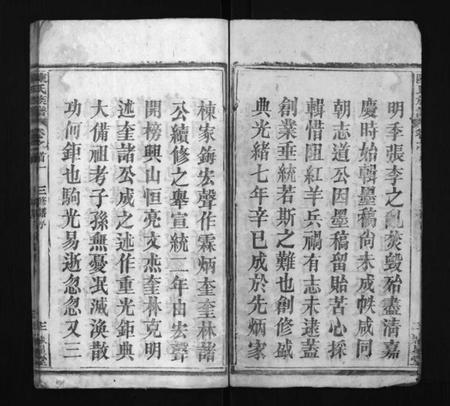 明季張李之亂焚毀殆盡清嘉
慶時始輯墨稿尚未成帙咸同
朝志道公因墨稿留貽苦心採
輯惜阻紅羊兵禍有志未逮蓋
創業垂統若斯之難也創修盛
典光緒七年辛巳成於先炳家
棟家鋂宏聲作霖炳奎奎林諸
公續修之舉宣統二年由宏聲
開榜興山恒亮文杰奎林克明
述奎諸公成之述作重光鉅典
大備祖考子孫無憂泯滅渙散
功何鉅也駒光易逝忽忽又三
陳氏族譜 卷之首一 三修譜序